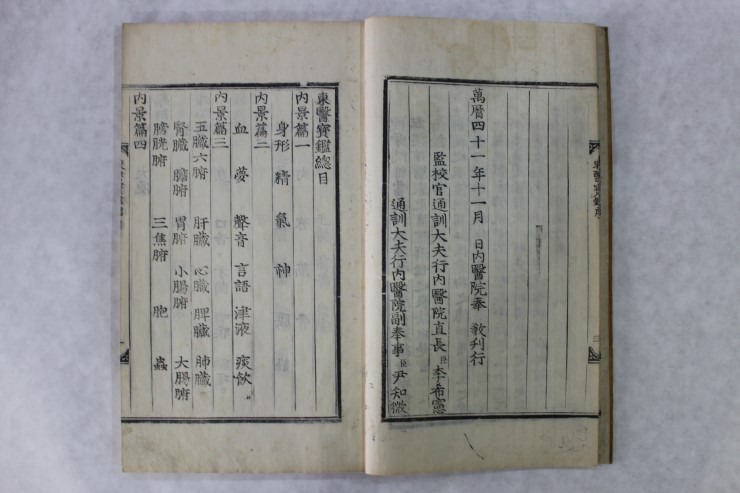 萬曆四十一年十一月 日內醫院奉 教刊行
監校官通訓大夫行內醫院直長臣李希憲
通訓大夫行內醫院副奉事臣尹知微
東醫寶鑑總目
內景篇一
身形 精 氣 神
內景篇二
血 夢 聲音 言語 津液 痰飮
內景篇三
五臟六腑 肝臟 心臟 脾臟 肺臟
腎臟 膽腑 胃腑 小腸腑 大腸腑
膀胱腑 三焦腑 胞 蟲
內景篇四